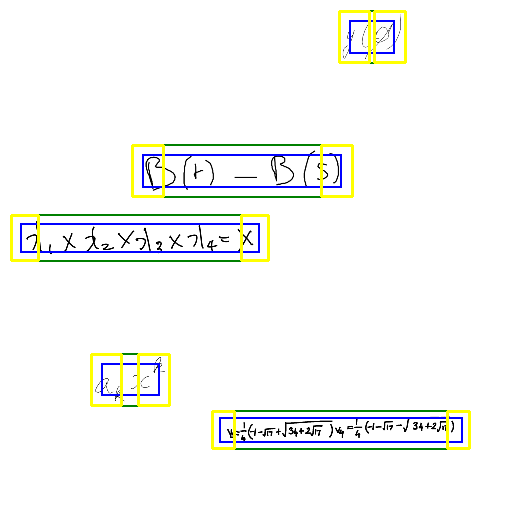 y(p)
B(t) - B(s)
x_1 × x_2 × x_3 × x_4 = x
a_k x^k
y_3=\frac{1}{4}(-1-\sqrt{17}+\sqrt{34+2\sqrt{17}}) y_4=\frac{1}{4}(-1-\sqrt{17}-\sqrt{34+2\sqrt{17}})